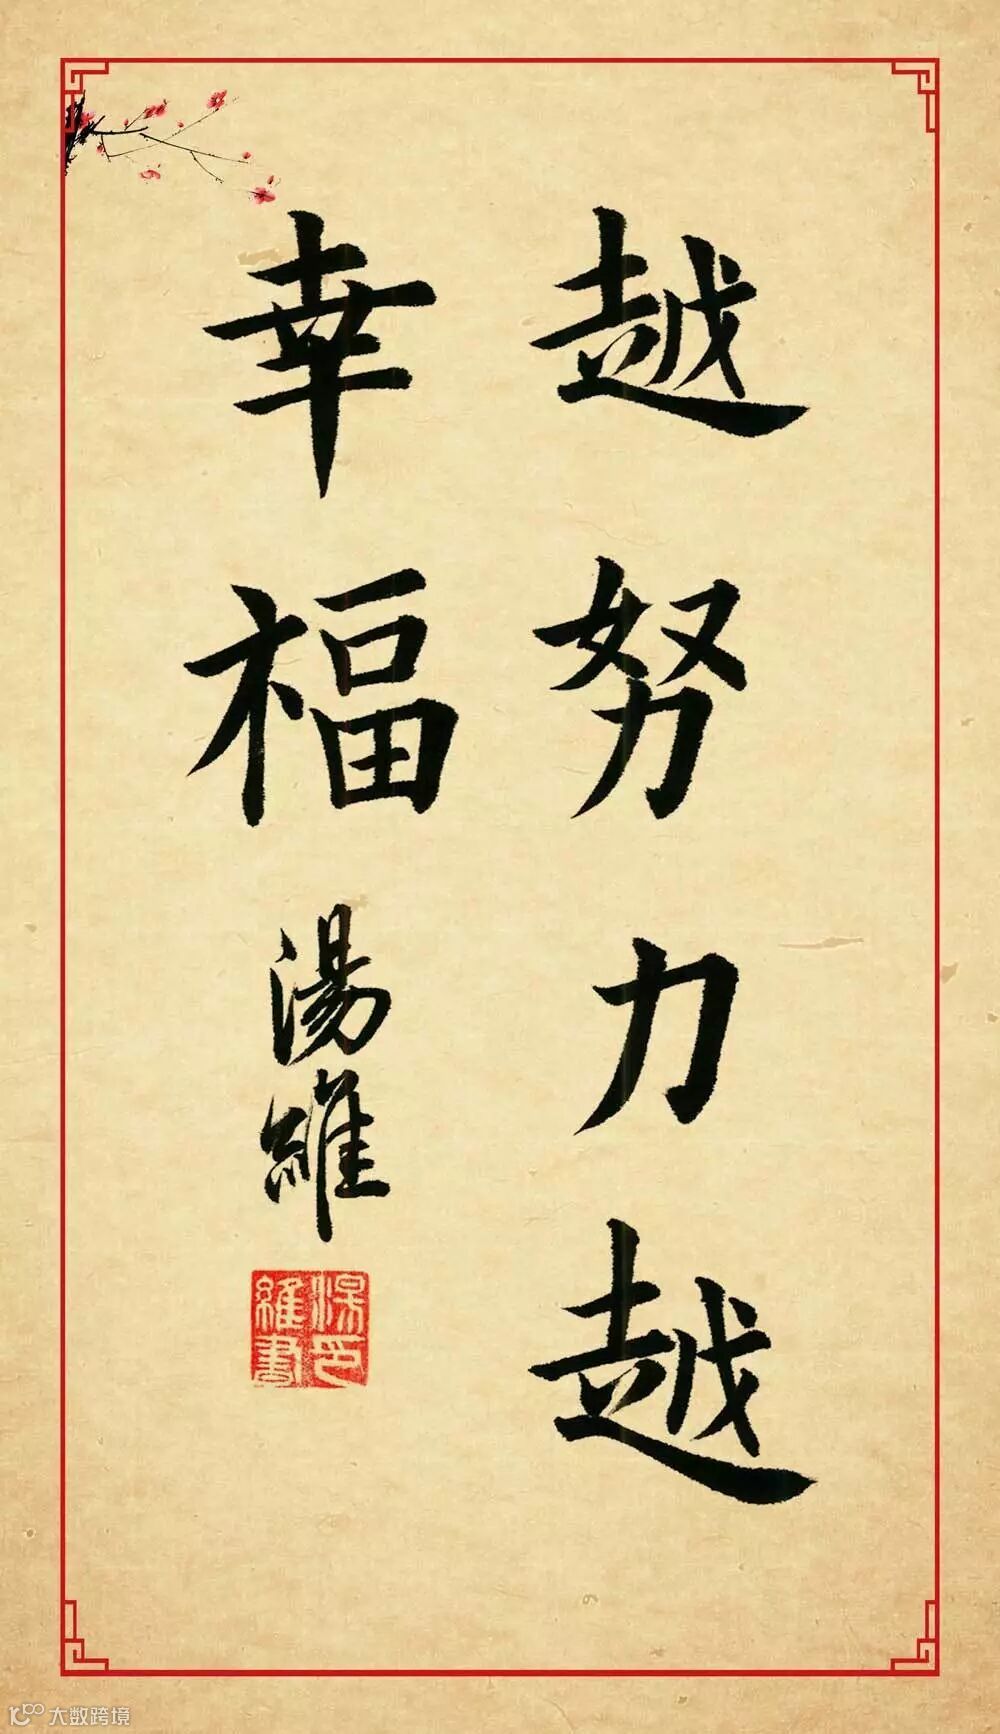 越努力越
幸福
湯維
湯印
維書
大数跨境